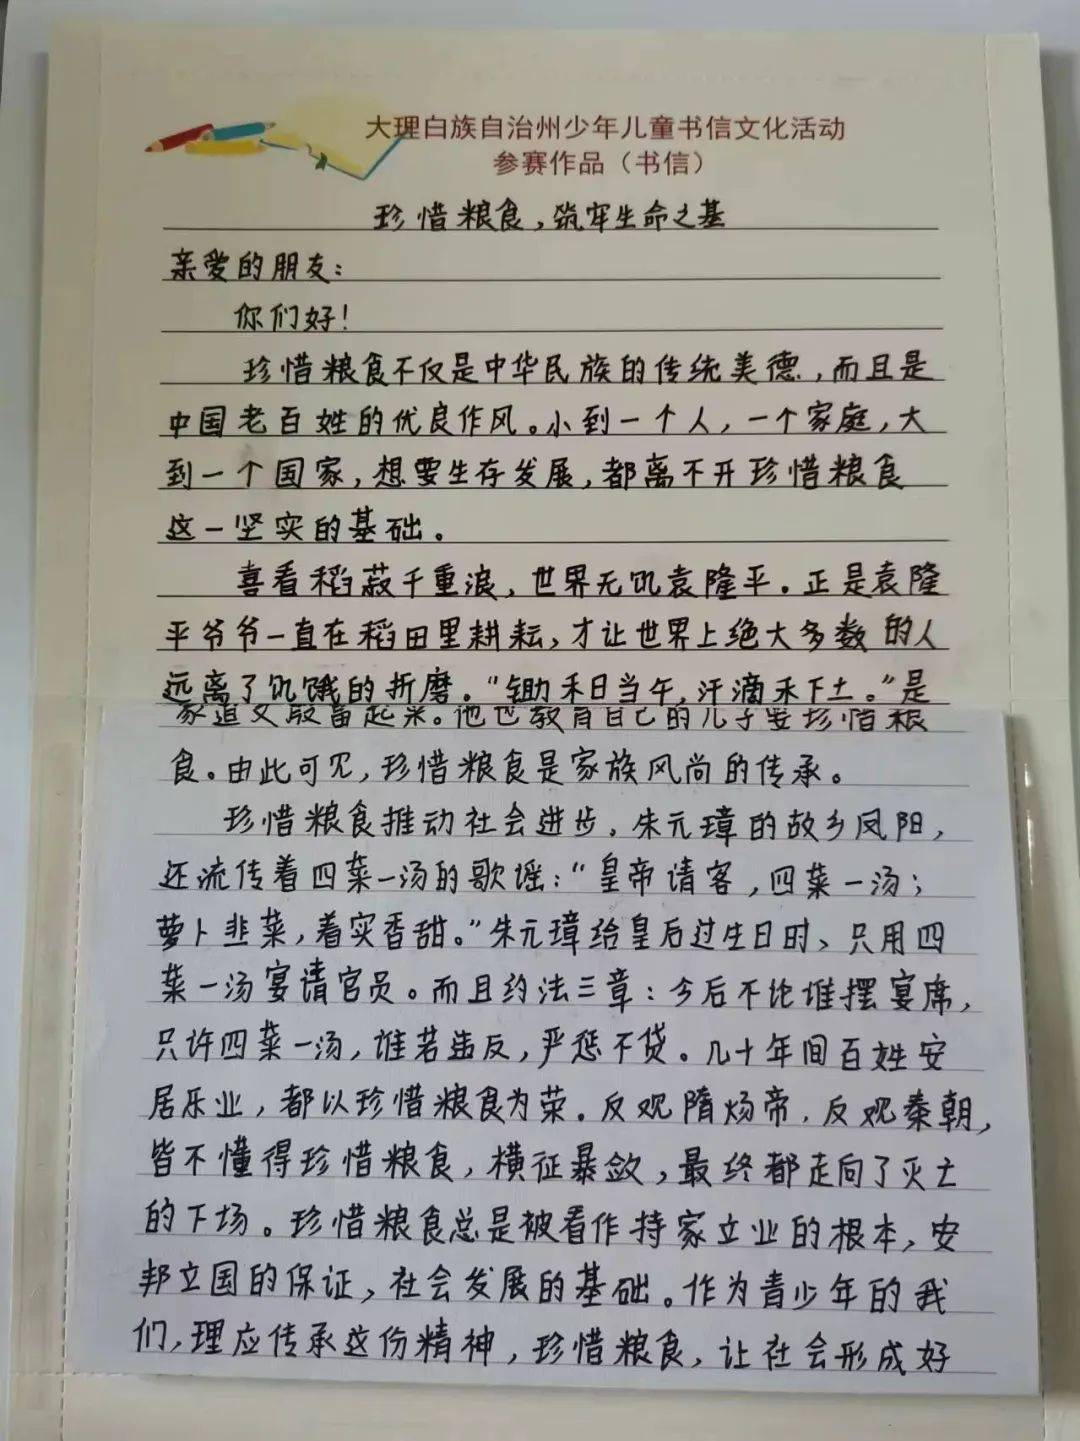 大理白族自治州少年儿童书信文化活动
参赛作品（书信）
珍惜粮食，筑牢生命之基
亲爱的朋友：
你们好！
珍惜粮食不仅是中华民族的传统美德，而且是
中国老百姓的优良作风。小到一个人，一个家庭，大
到一个国家，想要生存发展，都离不开珍惜粮食
这一坚实的基础。
喜看稻菽千重浪，世界无饥袁隆平。正是袁隆
平爷爷一直在稻田里耕耘，才让世界上绝大多数的人
远离了饥饿的折磨。“锄禾日当午，汗滴禾下土。”是
家道又殷富起来。他也教育自己的儿子要珍惜粮
食。由此可见，珍惜粮食是家族风尚的传承。
珍惜粮食推动社会进步，朱元璋的故乡凤阳，
还流传着四菜一汤的歌谣：“皇帝请客，四菜一汤；
萝卜韭菜，着实香甜。”朱元璋给皇后过生日时、只用四
菜一汤宴请官员。而且约法三章：今后不论谁摆宴席，
只许四菜一汤，谁若违反，严惩不贷。几十年间百姓安
居乐业，都以珍惜粮食为荣。反观隋炀帝，反观秦朝，
皆不懂得珍惜粮食，横征暴敛，最终都走向了灭亡
的下场。珍惜粮食总是被看作持家立业的根本，安
邦立国的保证，社会发展的基础。作为青少年的我
们，理应传承这份精神，珍惜粮食，让社会形成好